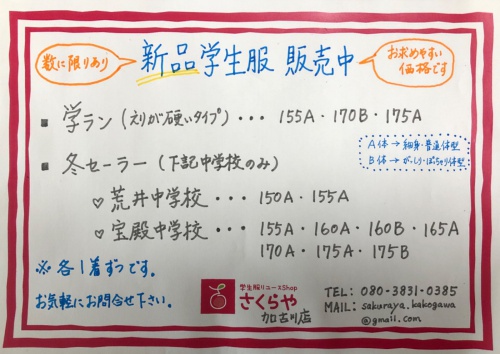 数に限りあり
新品学生服 販売中
お求めやすい
価格です
■ 学ラン(えりが硬いタイプ)・・・ 155A・170B・175A
A体→細身・普通体型
B体→がっしり・ぽっちゃり体型
■ 冬セーラー(下記中学校のみ)
♡ 荒井中学校・・・ 150A・155A
♡ 宝殿中学校・・・ 155A・160A・160B・165A
170A・175A・175B
※各1着ずつです。
お気軽にお問合せ下さい。
学生服リユースShop
さくらや
加古川店
TEL: 080-3831-0385
MAIL: sakuraya.kakogawa
@gmail.com